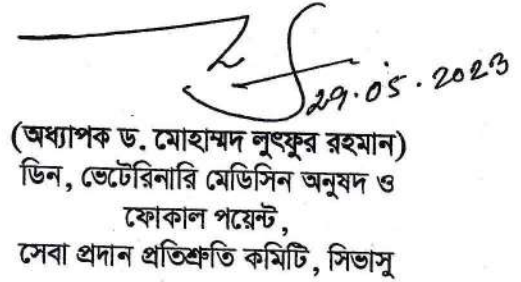 29.05.2023
(অধ্যাপক ড. মোহাম্মদ লুৎফুর রহমান)
ডিন, ভেটেরিনারি মেডিসিন অনুষদ ও
ফোকাল পয়েন্ট,
সেবা প্রদান প্রতিশ্রুতি কমিটি, সিভাসু